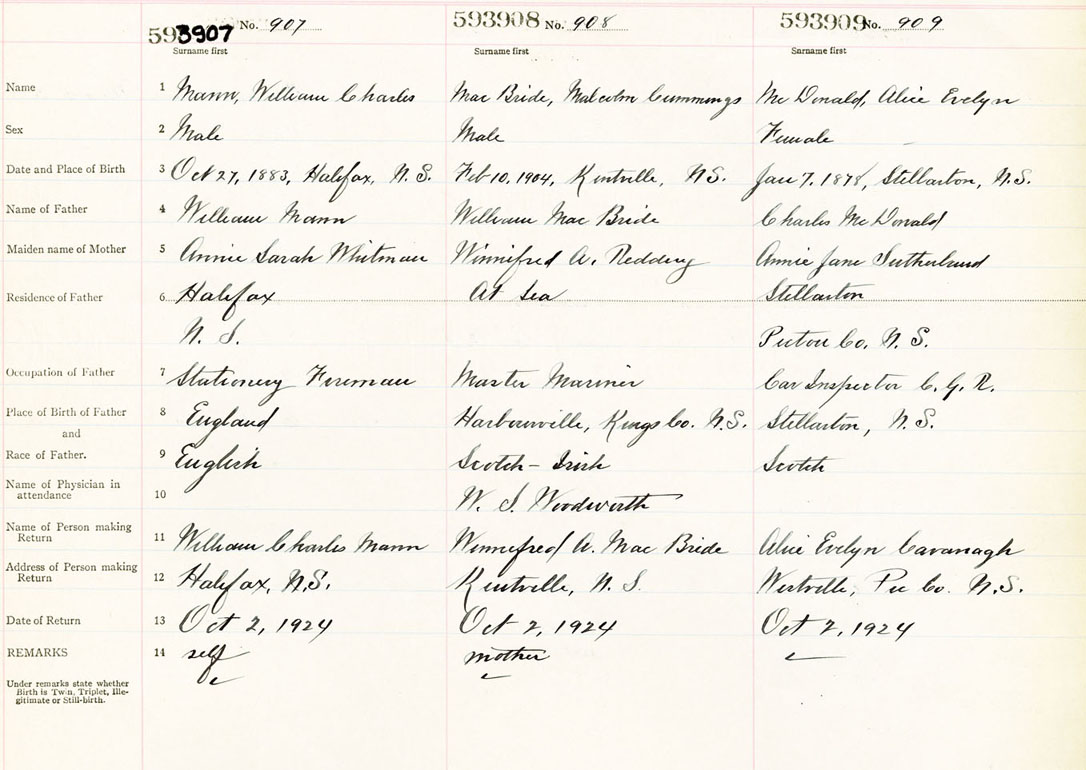 593907 No. 907 593908 No. 908 593909 No. 909
Surname first Surname first Surname first
Name 1 Mann, William Charles Mac Bride, Malcolm Cummings Mc Donald, Alice Evelyn
Sex 2 Male Male Female
Date and Place of Birth 3 Oct 27, 1883, Halifax, N.S. Feb 10, 1904, Kentville, NS. Jan 7, 1878, Stellarton, N.S.
Name of Father 4 William Mann William Mac Bride Charles Mc Donald
Maiden name of Mother 5 Annie Sarah Whitman Winnifred A. Redding Annie Jane Sutherland
Residence of Father 6 Halifax At Sea Stellarton
N. S. Pictou Co. N. S.
Occupation of Father 7 Stationery Fireman Master Mariner Car Inspector C. G. R.
Place of Birth of Father 8 England Harbourville, Kings Co. N.S. Stellarton, N. S.
and
Race of Father. 9 English Scotch - Irish Scotch
Name of Physician in
attendance 10 W. S. Woodworth
Name of Person making
Return 11 William Charles Mann Winnefred A. Mac Bride Alice Evelyn Cavanagh
Address of Person making
Return 12 Halifax, N.S. Kentville, N. S. Westville, Pic Co. N.S.
Date of Return 13 Oct 2, 1924 Oct 2, 1924 Oct 2, 1924
REMARKS 14 self mother
Under remarks state whether
Birth is Twin, Triplet, Ille-
gitimate or Still-birth.